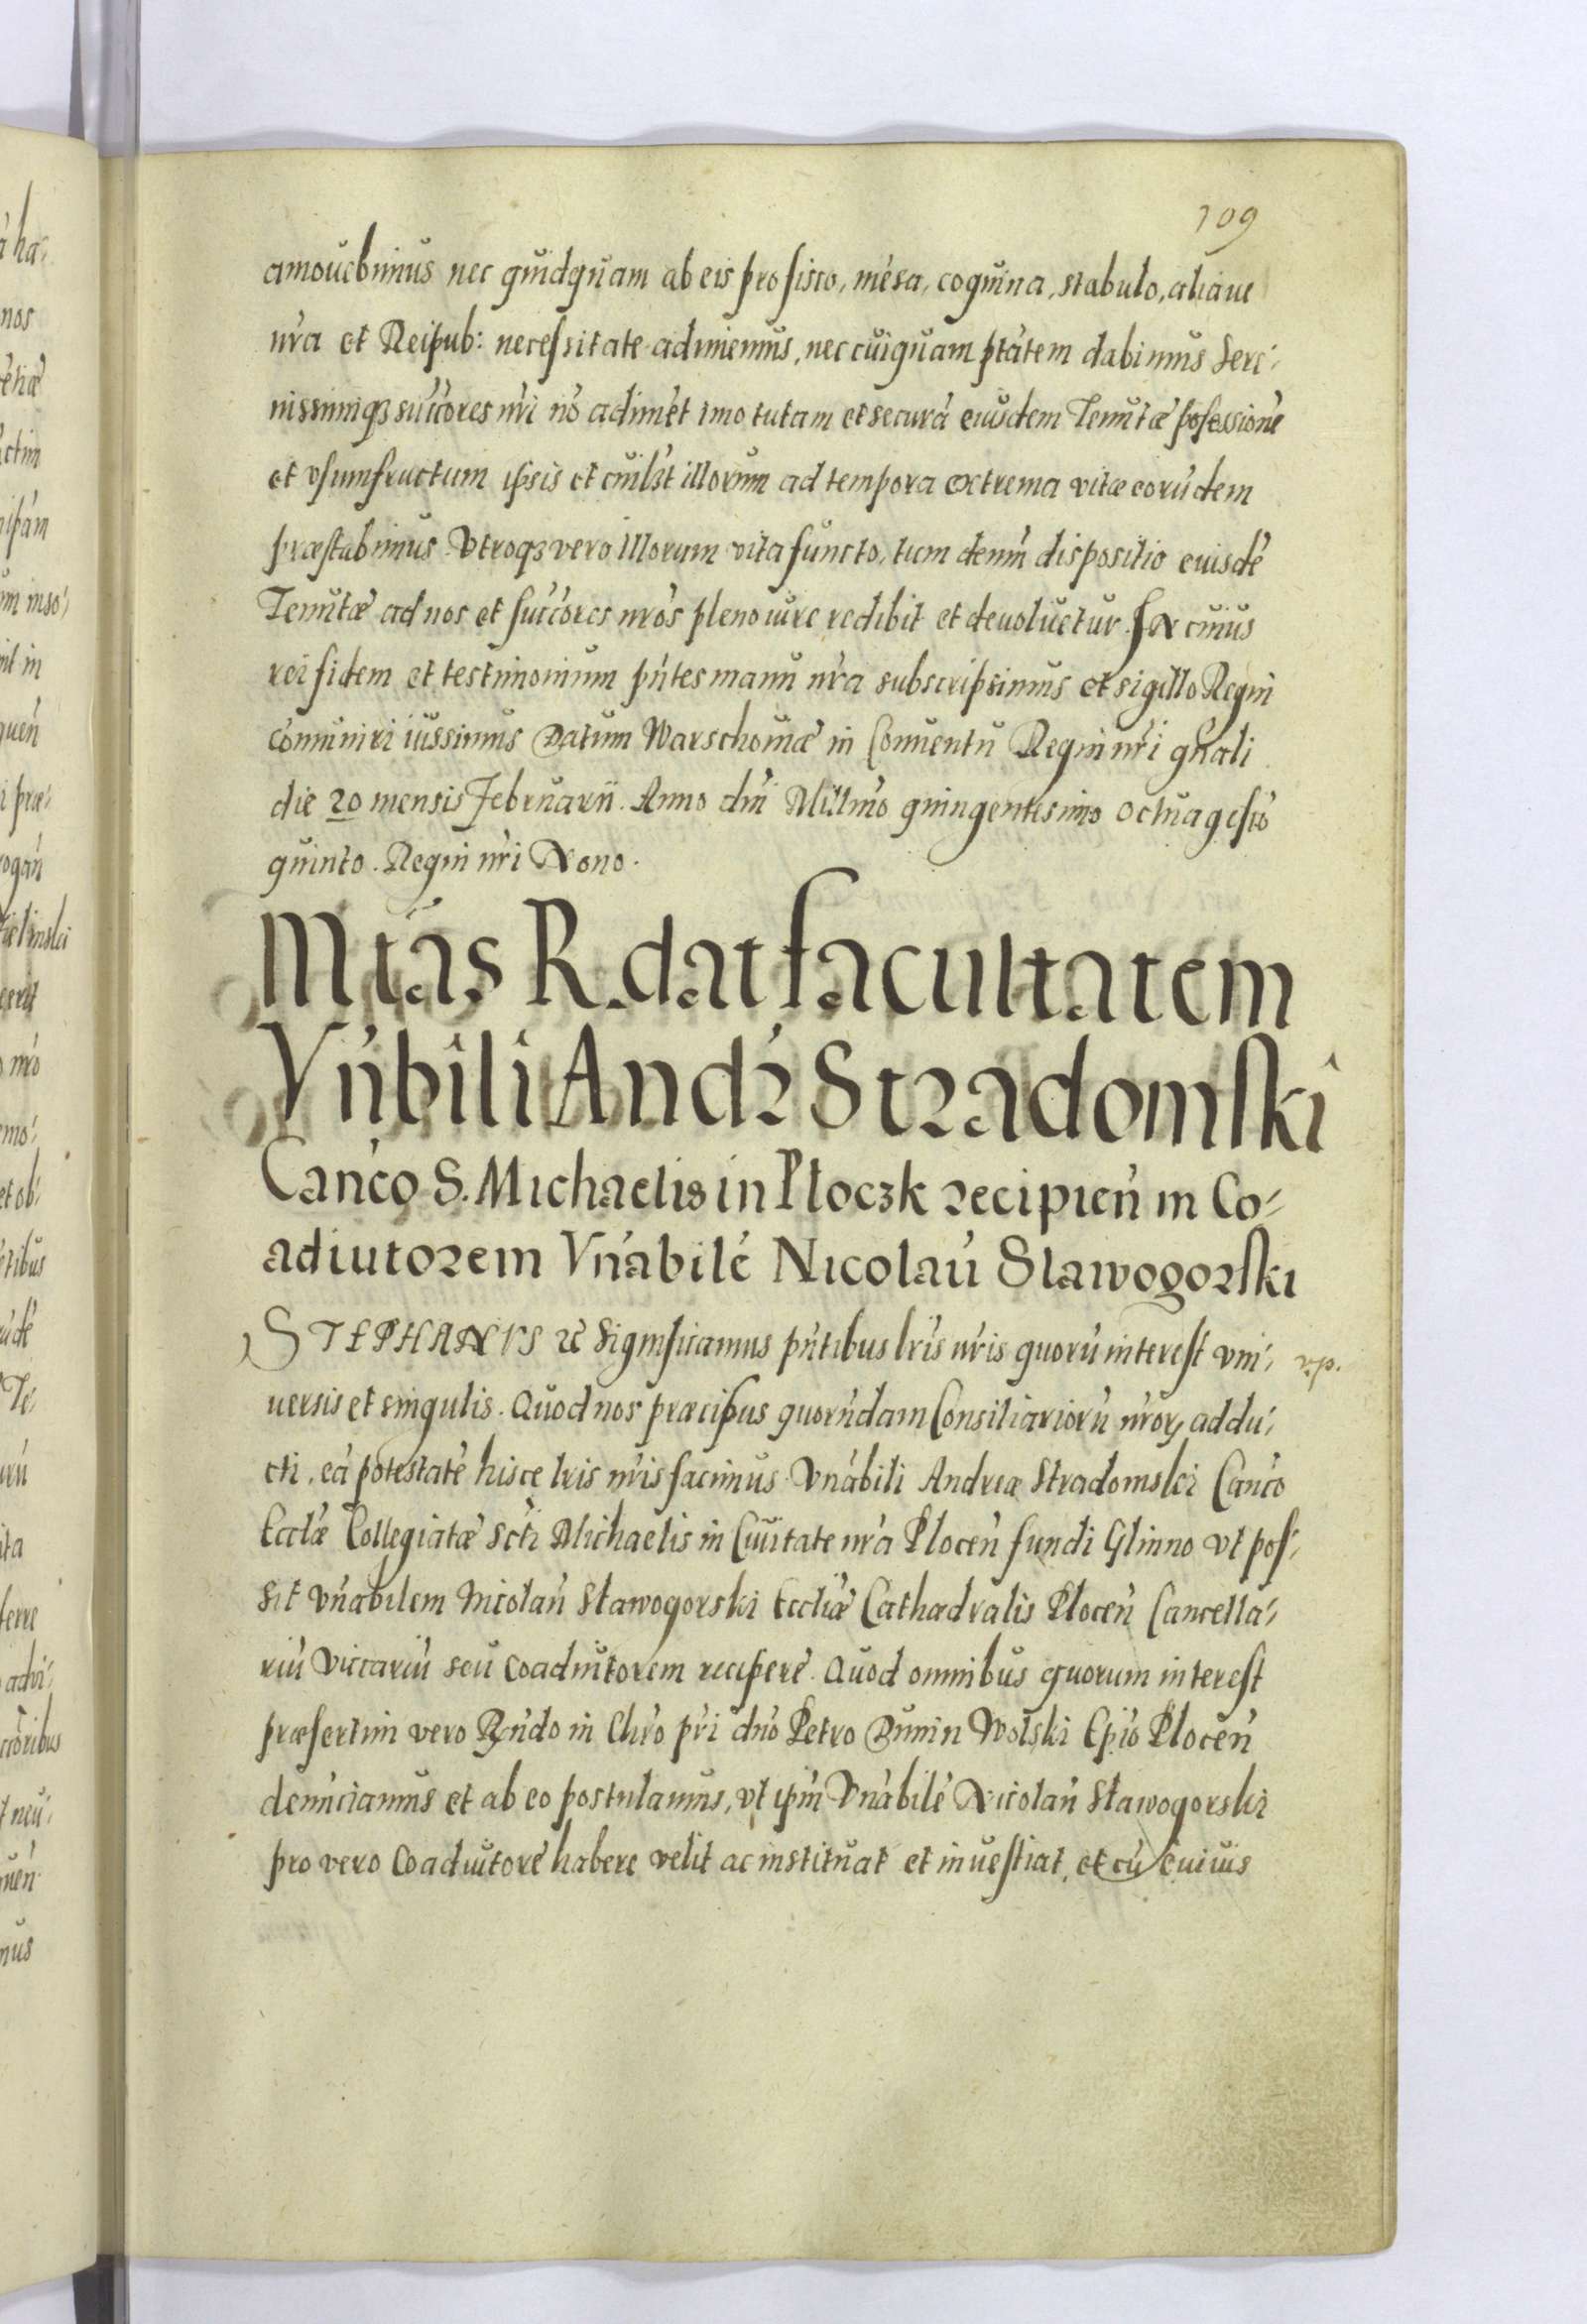 109
amouebimus nec quidquam ab eis pro fisco, mēsa, coquina, stabulo, aliaue
nr̄a et Reipub: necessitate adimemus, nec cuiquam ptātem dabimus Sere-
nissimiqꝫ succōres nr̄i nō adimēt imo tutam et securā eiusdem Tenutæ possessionē
et vsumfructum ipsis et cuilꝫt illorum ad tempora extrema vitæ eorūdem
præstabimus. Vtroqꝫ vero illorum vita functo, tum demū dispositio euisdē
Tenutæ ad nos et succōres nrōs pleno iure redibit et deuoluetur. In cuius
rei fidem et testimonium pn̄tes manu nr̄a subscripsimus et sigillo Regni
cōmuniri iussimus Datum Warschouiæ in Conuentu Regni nr̄i gn̄ali
die 20 mensis Februarii. Anno dn̄i Millmō quingentesimo octuagesīo
quinto. Regni nr̄i Nono.
Mtās R. dat facultatem
Vn̄bili Andꝛ̄ Stradomski
Canc̄o S. Michaelis in Ploczk recipien̄ in Co-
adiutorem Vn̄abilē Nicolaū Slawogorski
STEPHANVS &c̄ Significamus pn̄tibus lr̄is nr̄is quorū interest vni-
v.p.
uersis et singulis. Quod nos præcipuis quorūdam Consiliariorū nr̄oꝝ addu-
cti, eā potestatē hisce lr̄is nr̄is facimus Vn̄abili Andreæ Stradomski Canc̄o
Eccl̄æ Collegiatæ Sctī Michaelis in Ciuitate nr̄a Plocen̄ fundi Glinno vt pos-
sit vn̄abilem Nicolaū Sławogorski Eccliǣ Cathædralis Plocen̄ Cancella-
riū viccariū seu coadiutorem recipere. Quod omnibus quorum interest
præsertim vero Rn̄do in Chr̄o pr̄i dn̄o Petro Dunin Wolski Ep̄io Plocen̄
denunciamus et ab eo postulamus, vt ipm̄ Vn̄abilē Nicolaū Sławogorski
pro vero Coadiutore habere velit ac instituat et inuestiat, et cū euius